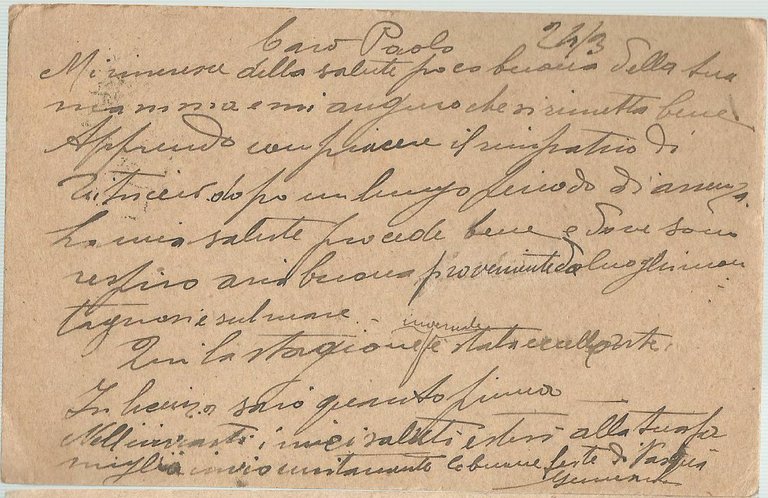 Caro Paolo 24/3
Mi rincresce della salute poco buona della tua
mamma e mi auguro che si rimetta bene
Apprendo con piacere il rimpatrio di
dopo un lungo periodo di assenza.
La mia salute procede bene e dove sono
respiro aria buona proveniente da luoghi mon
tagnosi e sul mare.
Qui la stagione invernale è stata eccellente.
In licenza sarò quanto prima
Nell'inviarti i miei saluti estesi alla tua fa
miglia invio unitamente le buone feste di Pasqua